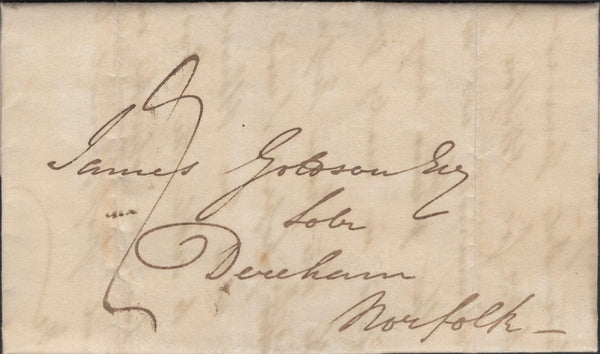 James Gobson Esq
Solr
Dereham
Norfolk –